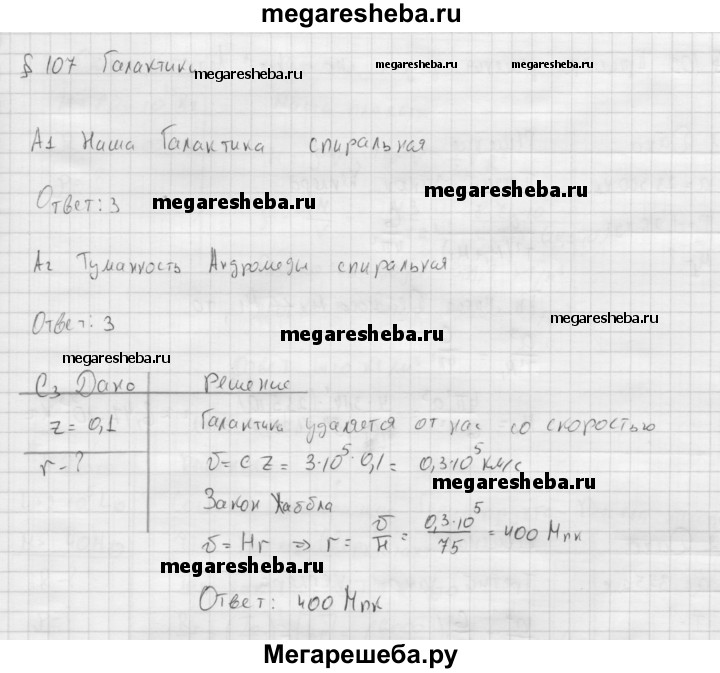 megaresheba.ru
§ 107 Галактики
megaresheba.ru
megaresheba.ru
megaresheba.ru
А1 Наша Галактика спиральная
Ответ: 3
megaresheba.ru
megaresheba.ru
А2 Туманность Андромеды спиральная
Ответ: 3
megaresheba.ru
megaresheba.ru
megaresheba.ru
С3 Дано
Решение
z = 0,1
Галактика удаляется от нас со скоростью
r - ?
υ = c z = 3·10⁵·0,1 = 0,3·10⁵ км/с
megaresheba.ru
Закон Хаббла
υ = Hr ⇒ r = υ/H = 0,3·10⁵/75 = 400 Мпк
megaresheba.ru
Ответ: 400 Мпк
Мегарешеба.ру